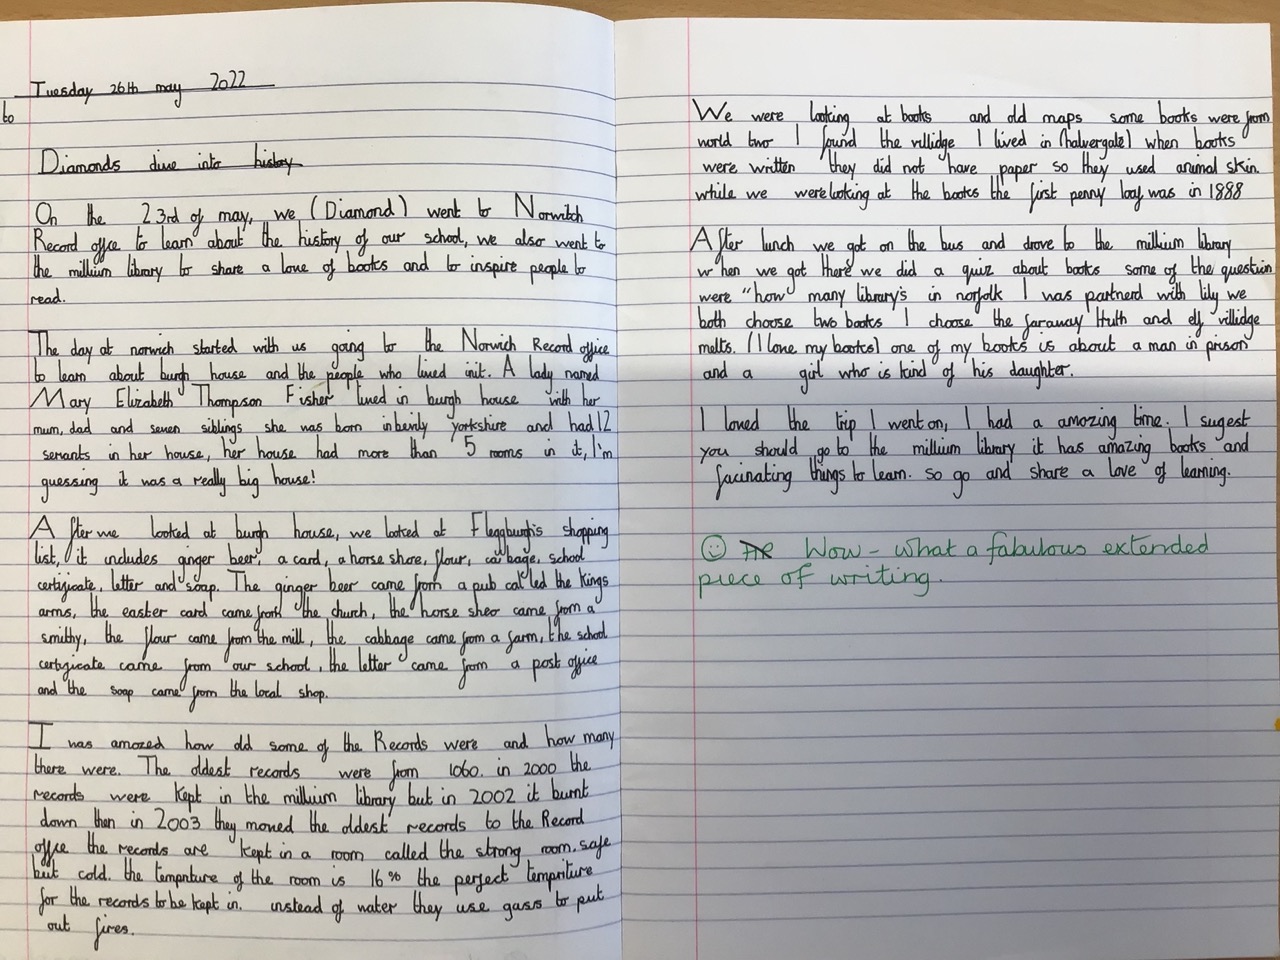 Tuesday 26th may 2022
to
Diamonds dive into history
On the 23rd of may, we (Diamond) went to Norwitch
Record office to learn about the history of our school, we also went to
the millium library to share a love of books and to inspire people to
read.
The day at norwich started with us going to the Norwich Record office
to learn about burgh house and the people who lived init. A lady named
Mary Elizabeth Thompson Fisher lived in burgh house with her
mum, dad and seven siblings she was born inbevily yorkshire and had 12
servants in her house, her house had more than 5 rooms in it, I'm
guessing it was a really big house!
After we looked at burgh house, we looked at Fleggburgh's shopping
list, it includes ginger beer, a card, a horse shore, flour, cabbage, school
certificate, letter and soap. The ginger beer came from a pub called the Kings
arms, the easter card came from the church, the horse sheo came from a
smithy, the flour came from the mill, the cabbage came from a farm, the school
certificate came from our school, the letter came from a post office
and the soap came from the local shop.
I was amozed how old some of the Records were and how many
there were. The oldest records were from 1060. in 2000 the
records were kept in the millium library but in 2002 it burnt
down then in 2003 they moved the oldest records to the Record
office the records are kept in a room called the strong room. safe
but cold. the tempriture of the room is 16% the perfect tempriture
for the records to be kept in. instead of water they use gasis to put
out fires.
We were looking at books and old maps some books were from
world two I found the villidge I lived in (halvergate) when books
were written they did not have paper so they used animal skin.
while we were looking at the books the first penny loaf was in 1888
After lunch we got on the bus and drove to the millium library
when we got there we did a quiz about books some of the question
were "how many library's in norfolk I was partnerd with lily we
both choose two books I choose the faraway truth and elf villidge
melts. (I love my books) one of my books is about a man in prison
and a girl who is kind of his daughter.
I loved the trip I went on, I had a amozing time. I sugest
you should go to the millium library it has amazing books and
facinating things to learn. so go and share a love of learning.
Wow - what a fabulous extended
piece of writing.